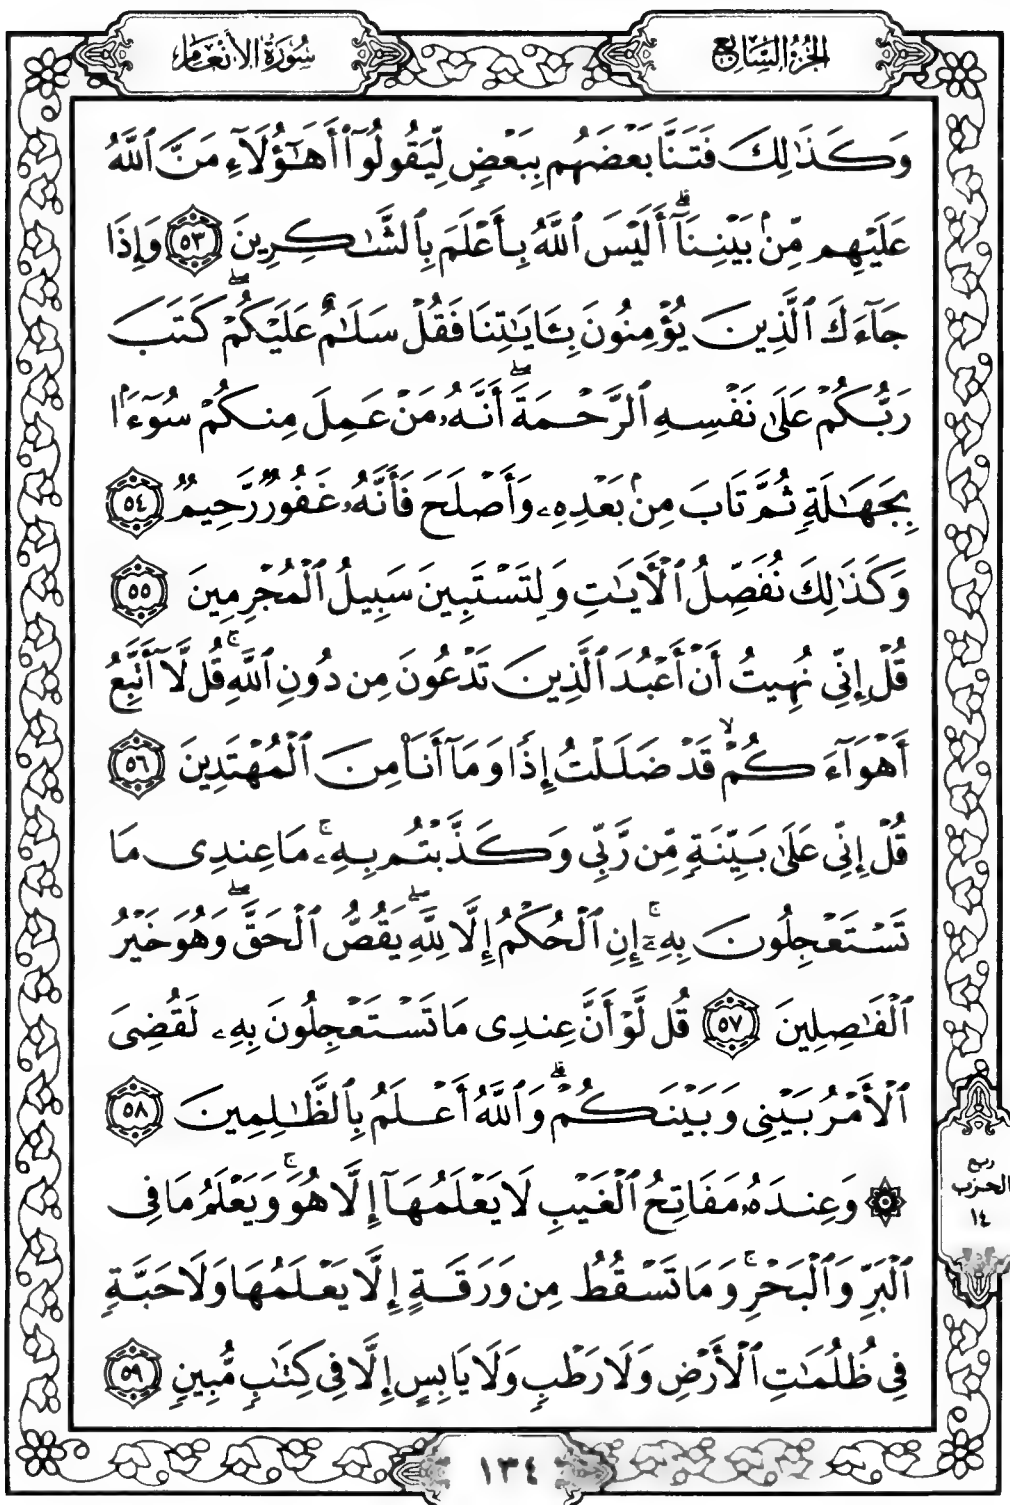 الجزء السابع
سورة الأنعام
وَكَذَٰلِكَ فَتَنَّا بَعْضَهُم بِبَعْضٍ لِّيَقُولُوٓا۟ أَهَٰٓؤُلَآءِ مَنَّ ٱللَّهُ
عَلَيْهِم مِّنۢ بَيْنِنَآ ۗ أَلَيْسَ ٱللَّهُ بِأَعْلَمَ بِٱلشَّٰكِرِينَ ٥٣ وَإِذَا
جَآءَكَ ٱلَّذِينَ يُؤْمِنُونَ بِـَٔايَٰتِنَا فَقُلْ سَلَٰمٌ عَلَيْكُمْ ۖ كَتَبَ
رَبُّكُمْ عَلَىٰ نَفْسِهِ ٱلرَّحْمَةَ ۖ أَنَّهُۥ مَنْ عَمِلَ مِنكُمْ سُوٓءًۢا
بِجَهَٰلَةٍ ثُمَّ تَابَ مِنۢ بَعْدِهِۦ وَأَصْلَحَ فَأَنَّهُۥ غَفُورٌ رَّحِيمٌ ٥٤
وَكَذَٰلِكَ نُفَصِّلُ ٱلْأَيَٰتِ وَلِتَسْتَبِينَ سَبِيلُ ٱلْمُجْرِمِينَ ٥٥
قُلْ إِنِّى نُهِيتُ أَنْ أَعْبُدَ ٱلَّذِينَ تَدْعُونَ مِن دُونِ ٱللَّهِ ۚ قُل لَّآ أَتَّبِعُ
أَهْوَآءَكُمْ ۙ قَدْ ضَلَلْتُ إِذًا وَمَآ أَنَا۠ مِنَ ٱلْمُهْتَدِينَ ٥٦
قُلْ إِنِّى عَلَىٰ بَيِّنَةٍ مِّن رَّبِّى وَكَذَّبْتُم بِهِۦ ۚ مَا عِندِى مَا
تَسْتَعْجِلُونَ بِهِۦٓ ۚ إِنِ ٱلْحُكْمُ إِلَّا لِلَّهِ ۖ يَقُصُّ ٱلْحَقَّ ۖ وَهُوَ خَيْرُ
ٱلْفَٰصِلِينَ ٥٧ قُل لَّوْ أَنَّ عِندِى مَا تَسْتَعْجِلُونَ بِهِۦ لَقُضِىَ
ٱلْأَمْرُ بَيْنِى وَبَيْنَكُمْ ۗ وَٱللَّهُ أَعْلَمُ بِٱلظَّٰلِمِينَ ٥٨
۞ وَعِندَهُۥ مَفَاتِحُ ٱلْغَيْبِ لَا يَعْلَمُهَآ إِلَّا هُوَ ۚ وَيَعْلَمُ مَا فِى
ٱلْبَرِّ وَٱلْبَحْرِ ۚ وَمَا تَسْقُطُ مِن وَرَقَةٍ إِلَّا يَعْلَمُهَا وَلَا حَبَّةٍ
فِى ظُلُمَٰتِ ٱلْأَرْضِ وَلَا رَطْبٍ وَلَا يَابِسٍ إِلَّا فِى كِتَٰبٍ مُّبِينٍ ٥٩
ربع
الحزب
١٤
١٣٤